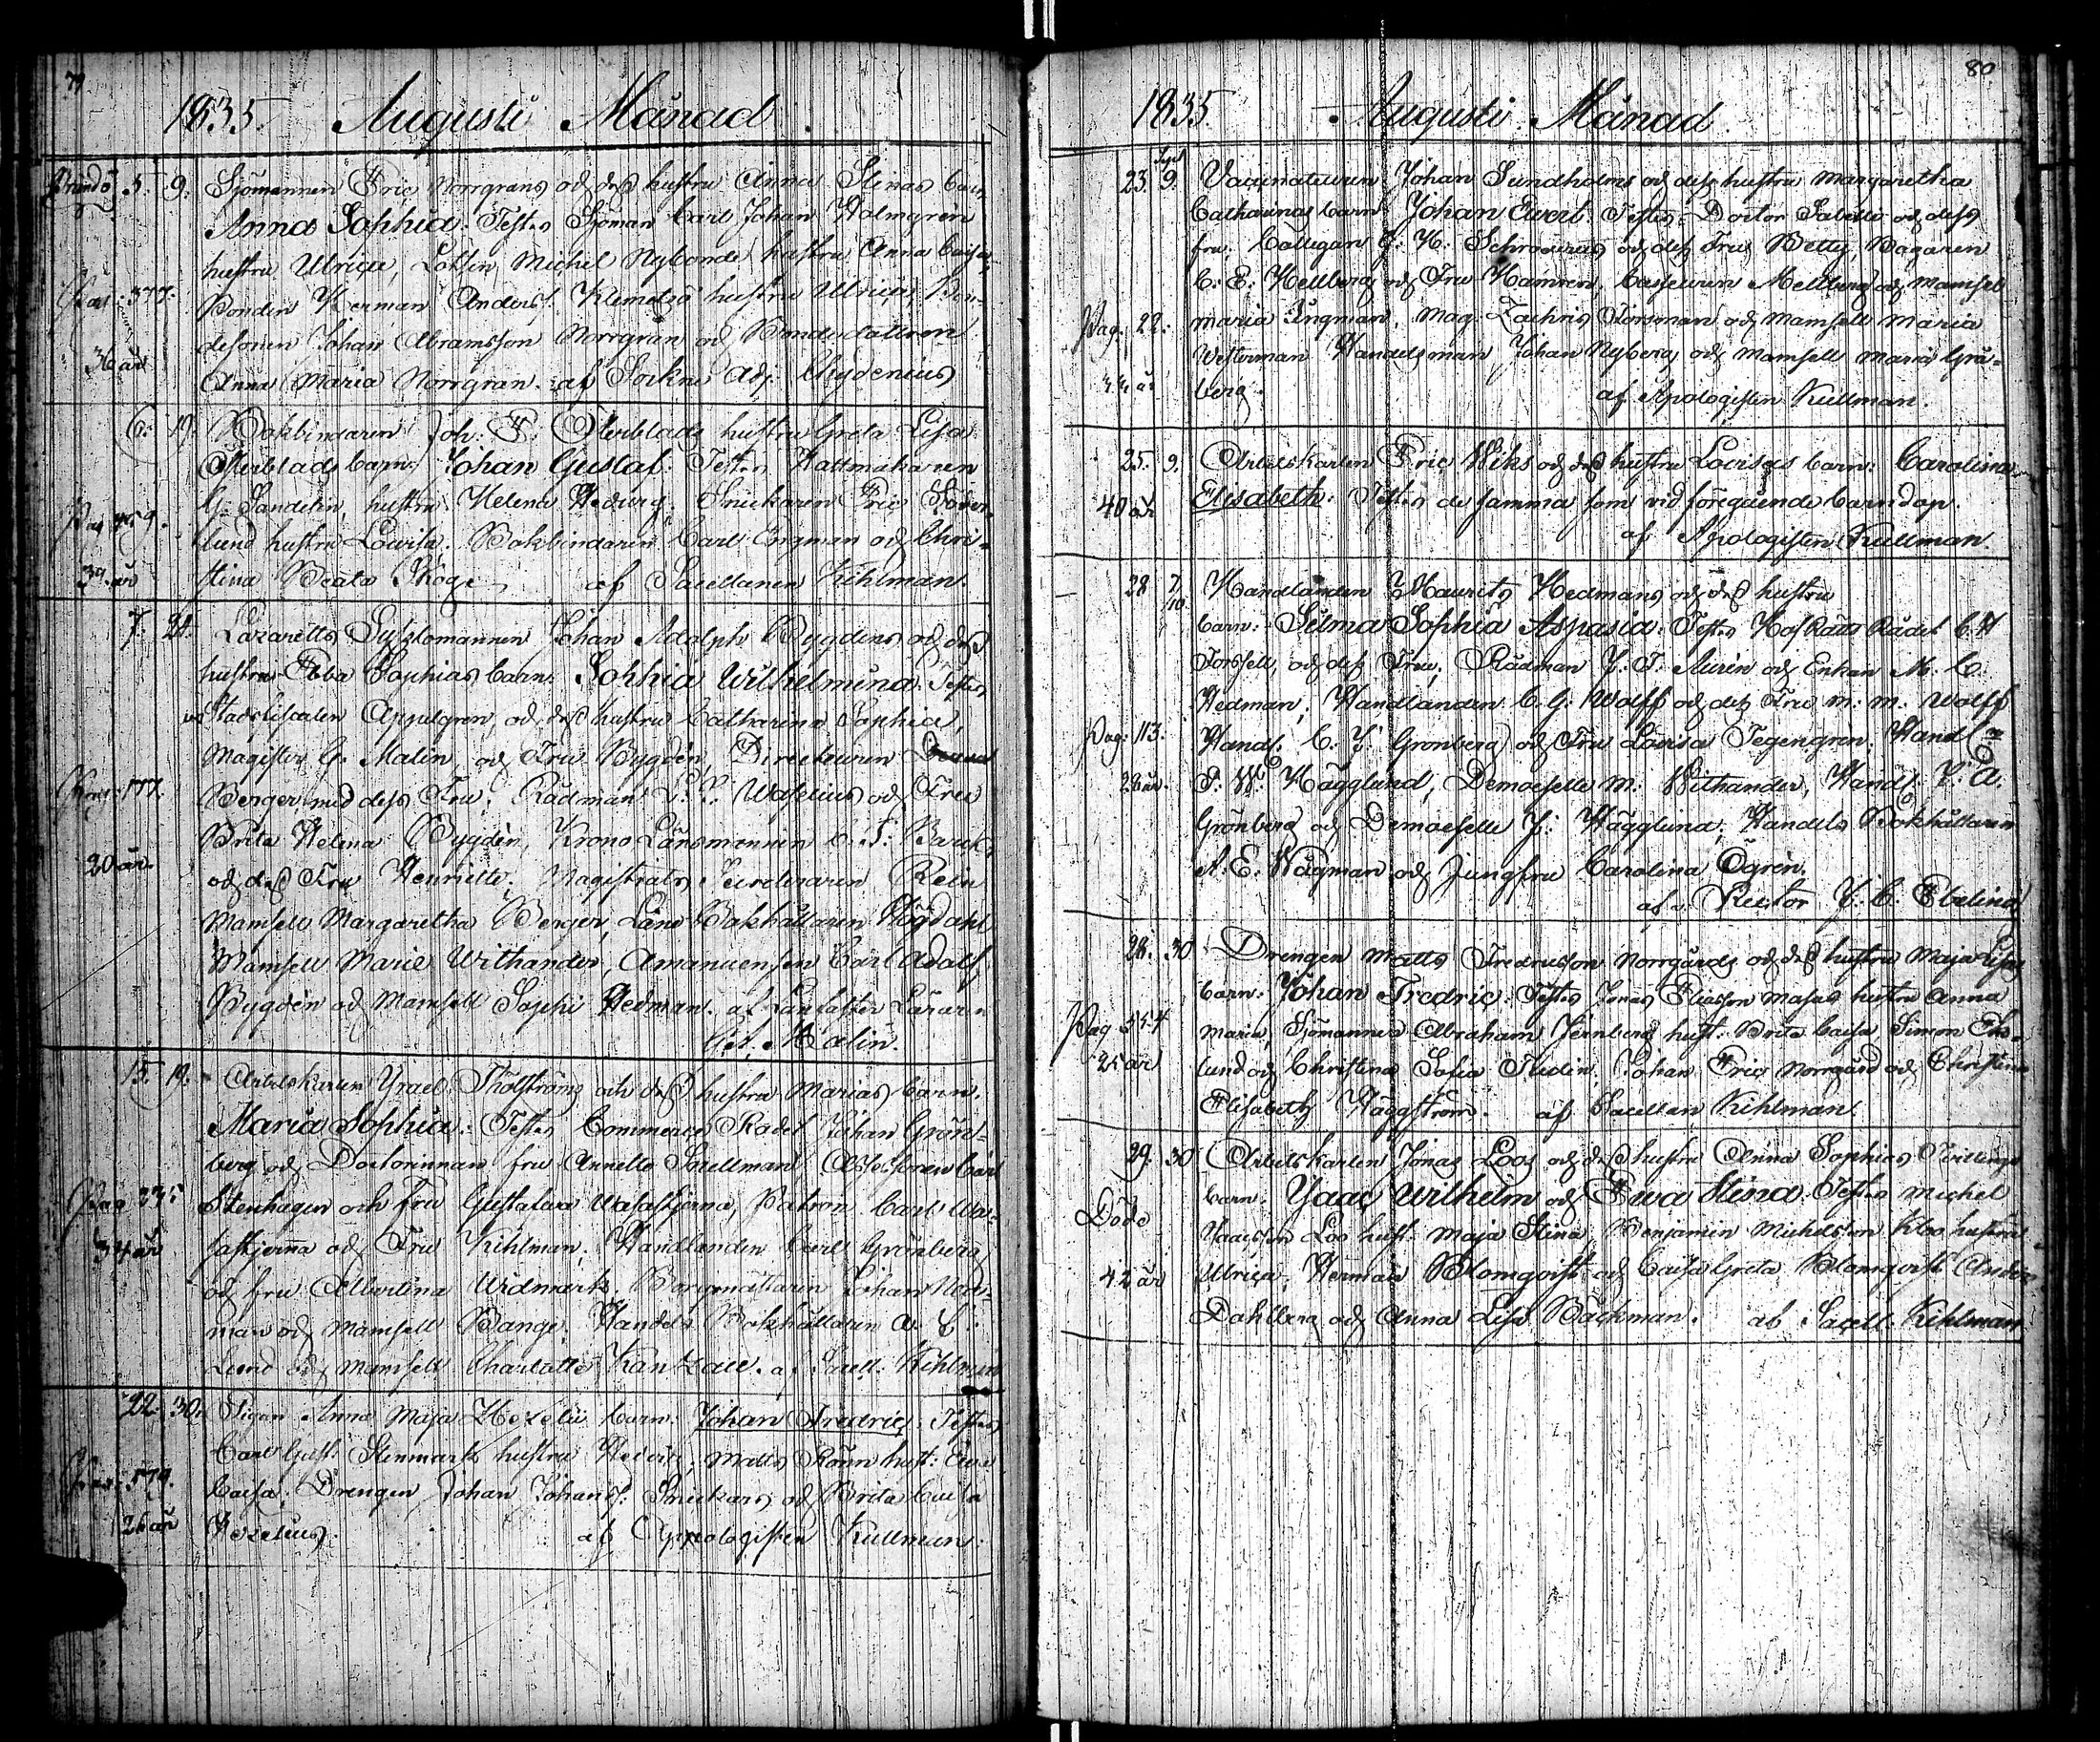 79
1835. Augusti Månad.
Brändö 5. 9. Sjömannen Eric Norrgrans och dess hustru Anna Stinas barn,
Anna Sophia. Testes Sjöman Carl Johan Holmgren
hustru Ulrica, Lotsen Michel Nylunds hustru Anna Caisa,
Pag: 377. Bonden Herman Anders: Klemetsö hustru Ulrica, Bon-
desonen Johan Abramsson Norrgran och Bondedottren
36 år Anna Maria Norrgran. af Sockne Adj. Chydenius
6. 19. Bokbindaren Joh: F: Österblads hustru Greta Lisa
Österblads barn: Johan Gustaf. Testes Hattmakaren
G. Sandelin, hustru Helena Hedvig, Snickaren Eric Söder-
Pag lund hustru Lovisa. Bokbindaren Carl Engman och Chri-
39. år stina Beata Skoge af Sacellanen Kihlman.
7. 21. Lazaretts Sysslomannen Johan Adolph Bygdens och dess
hustru Ebba Sophias barn: Sophia Wilhelmina. Testes
Stadsfiscalen Appelgren, och dess hustru Catharina Sophia,
Magister G. Malin, och Fru Bygdén, Directeuren
Pag: 177. Berger med dess Fru, Rådman Wasselius och Fru
Brita Helena Bygdén, Krono Länsmannen C. F. Barck
20 år. och dess Fru Henriette, Magistrats Secreteraren Rein
Mamsell Margaretha Berger, Läns Bokhållaren Högdahl
Mamsell Marie Withander, Amanuensen Carl Adolf
Bygdén och Mamsell Sophi Hedman. af Lärare
Malin.
15. 19. Arbetskarlen Ysrael Tholströms och dess hustru Marias barn,
Maria Sophia. Testes Commerce Rådet Johan Grön-
berg och Doctorinnan fru Annette Sacellman Assessoren Carl
Pag 235 Stenhagen och Fru Gustafava Wasastjerna, Patron Carl Wa-
34 år sastjerna och Fru Kihlman, Handlanden Carl Grönberg
och fru Albertina Widmark, Borgmästaren Johan
man och Mamsell Bange, Handels Bokhållaren
Lund och Mamsell Charlotte Kantzau. af Sacell: Kihlman
22. 30. Pigan Anna Maja Hexelii barn: Johan Fredric. Testes
Carl Gust: Stenmark hustru Hedvig, Matts Rönn hust: Eva
Pag: 579. Caisa, Drengen Johan Johans: Snickars och Brita Caisa
26 år Hexelius. af Appologisten Kullman.
80
1835. Augusti Månad.
23. 9. Vaccinateuren Johan Sundholms och dess hustru Margaretha
Catharinas barn Johan Evert. Testes Doctor och dess
fru, Collegan G: H: Schroderus och dess Fru Betty, Bagaren
C. E. Hellberg och Fru Hamren, Casseuren Mellberg och Mamsell
Pag. 22: Maria Ingman, Mag: Zachris Forsman och Mamsell Maria
Westerman Handelsman Johan Nyberg och Mamsell Maria Grå-
33 år berg. af Apologisten Kullman.
25. 9. Arbetskarlen Eric Wiks och dess hustru Lovisas barn: Carolina
40 år Elisabeth. Testes de samma som vid föregående barndop.
af Apologisten Kullman.
28 7/10 Handlanden Maurits Hedmans och dess hustru
barn: Selma Sophia Aspasia. Testes HofRätts Rådet C. H
Forssell, och dess Fru, Rådman J. F. Aurén och Enkan M. C.
Hedman, Handlanden C. G. Wolff och dess Fru M. M. Wolff
Pag: 113. Handl: C. J. Grönberg och Fru Lovisa Tegengren, Handl:
28 år. P. W. Hägglund, Demoiselle M: Withander, Handl: J. A.
Grönberg och Demoiselle J: Hägglund, Handels Bokhållaren
A. E. Wägman och Jungfru Carolina Ögren.
af Rector J. C. Ebeling
28. 30 Drengen Matts Fredricsson Norrgårds och dess hustru Maja Lisas
barn: Johan Fredric. Testes Jonas Eliasson Masas hustru Anna
Pag 554 Maria, Sjömannen Abraham Jernberg hust: Brita Caisa, Simon Ek-
25 år lund och Christina Sofia Tludin, Johan Eric Norrgård och Christina
Elisabeth Häggström. af Sacellan Kihlman.
29. 30 Arbetskarlen Jonas Loos och dess hustru Anna Sophias Tvillinge
barn. Ysaac Wilhelm och Ewa Stina. Testes Michel
Döde Ysacsson Loo hust: Maja Stina, Benjamin Michelsson Kloo hustru
42 år Ulrica, Herman Blomqvist och Caisa Greta Blomqvist Anders
Dahlberg och Anna Lisa Backman. af Sacell. Kihlman